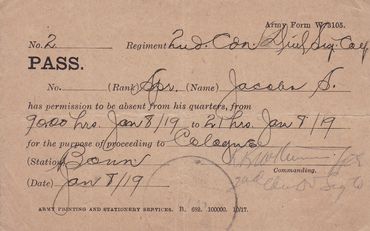 Army Form W3105.
No. 2 Regiment 2nd. Cdn Div. Sig. Coy
PASS.
No. (Rank) Spr. (Name) Jacobs S.
has permission to be absent from his quarters, from
9000 hrs. Jan 8/19 to 21 hrs Jan 8/19
for the purpose of proceeding to Cologne
(Station) Bonn
Commanding.
(Date) Jan 8/19
2nd Sig Co
ARMY PRINTING AND STATIONERY SERVICES. B. 692. 100000. 10/17.